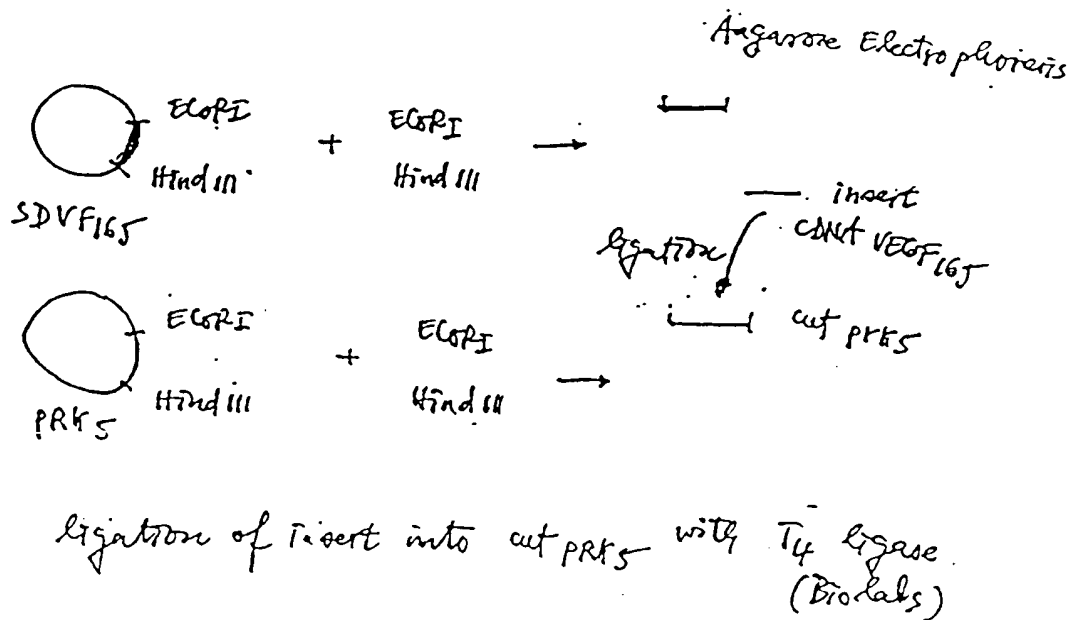 Aagarose Electrophoresis
ECoRI
Hind III
SDVF165
+
ECoRI
Hind III
insert
cDNA VEGF165
ligation
ECoRI
Hind III
PRK5
+
ECoRI
Hind III
cut PRK5
ligation of insert into cut PRK5 with T4 ligase
(Biolabs)